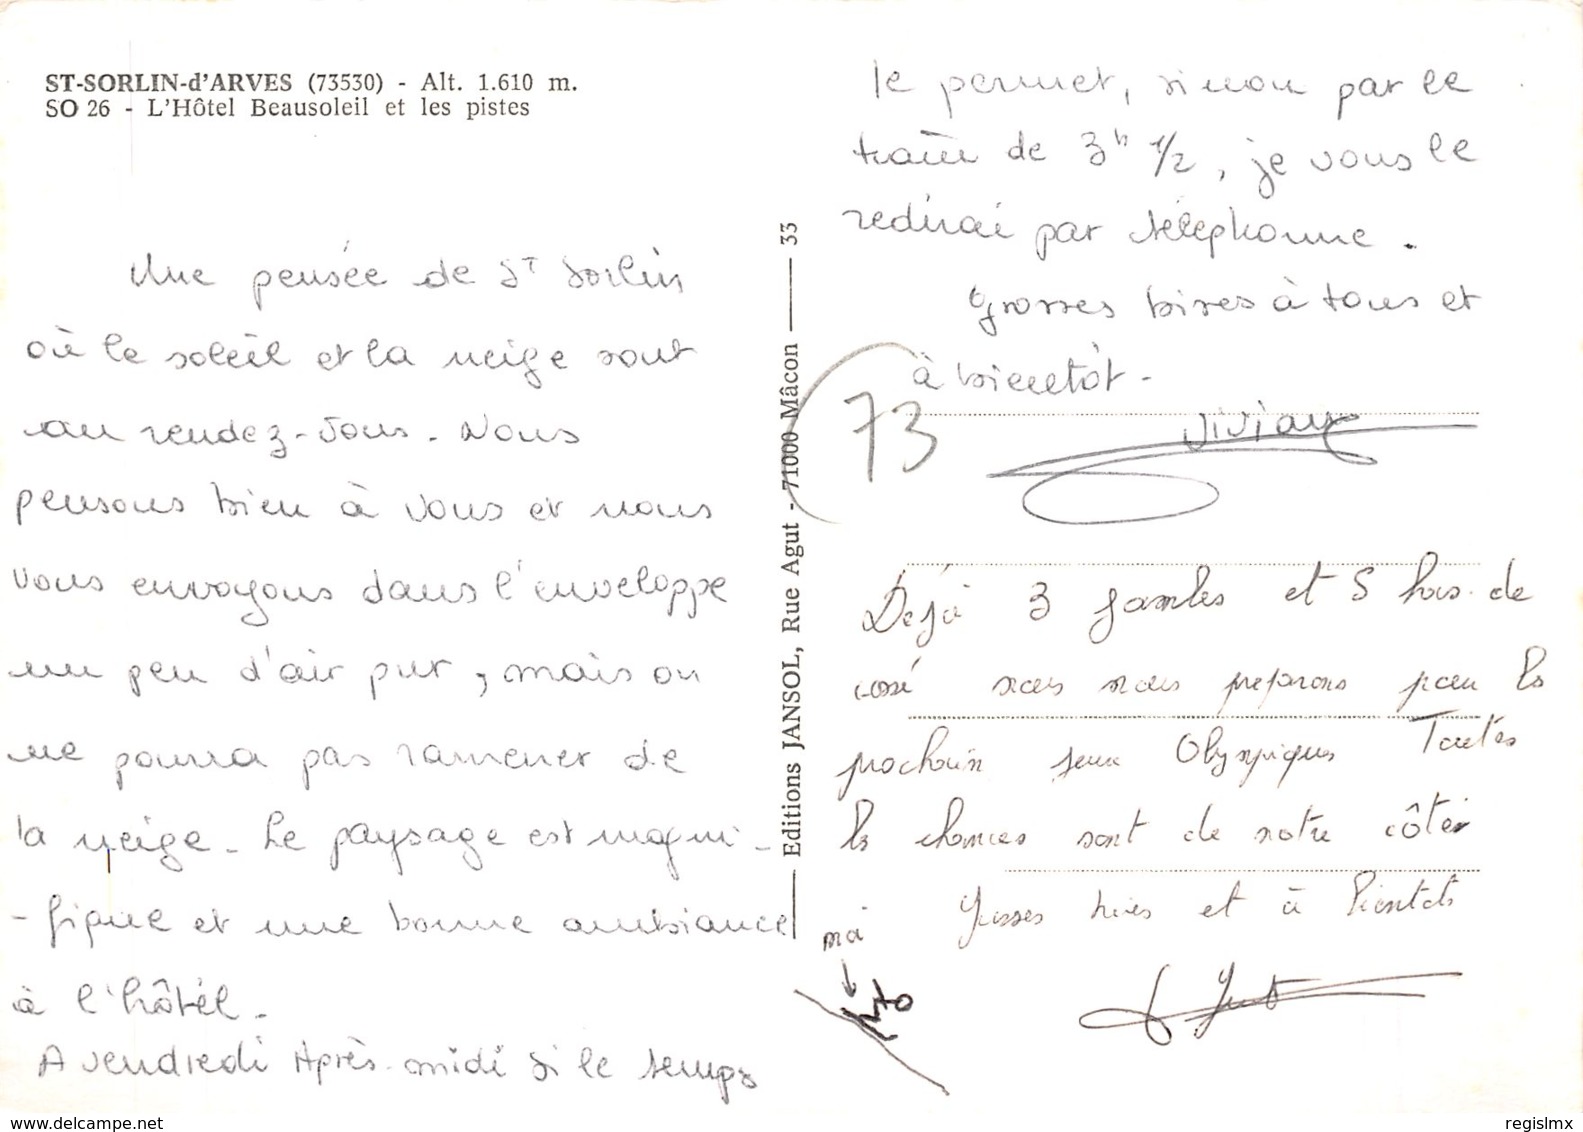 ST-SORLIN-d'ARVES (73530) - Alt. 1.610 m.
SO 26 - L'Hôtel Beausoleil et les pistes
Une pensée de St Sorlin
où le soleil et la neige sont
au rendez-vous. Nous
pensons bien à vous et nous
vous envoyons dans l'enveloppe
un peu d'air pur, mais on
ne pourra pas ramener de
la neige. Le paysage est magni-
-fique et une bonne ambiance
à l'hôtel.
A vendredi Après-midi si le temps
Editions JANSOL, Rue Agut - 71000 Mâcon — 33
le permet, sinon par le
train de 3h 1/2, je vous le
redirai par téléphone.
Grosses bises à tous et
à bientôt -
73
Viviane
Déjà 3 gamles et 5 hors. de
nous nous préparons pour les
prochain jeux Olympiques Toutes
les chances sont de notre côté
Grosses bises et à bientôt
moi
www.delcampe.net
regislmx